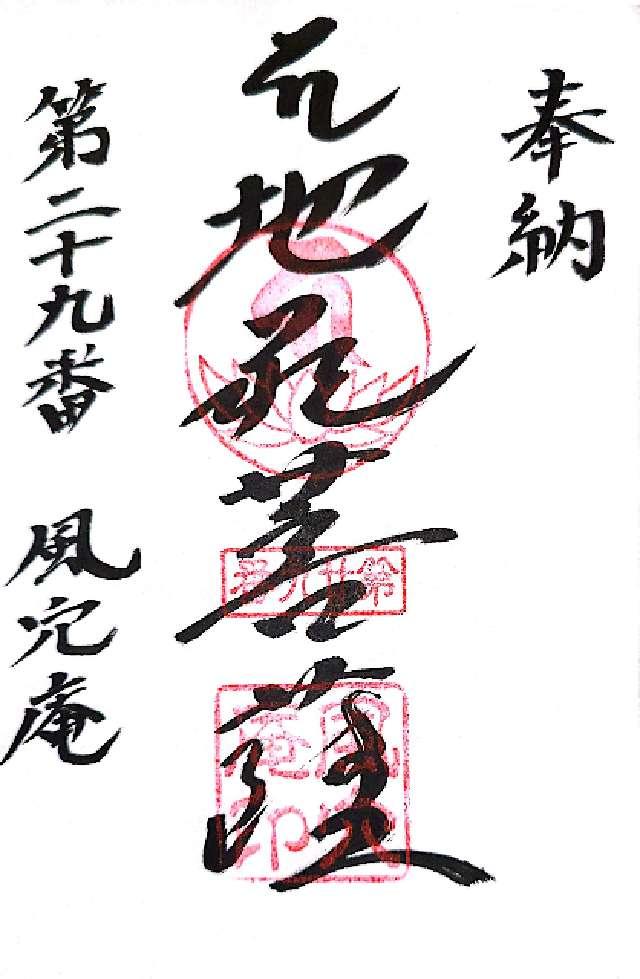 奉納
地蔵菩薩
第廿九番
風穴
庵印
第二十九番 風穴庵